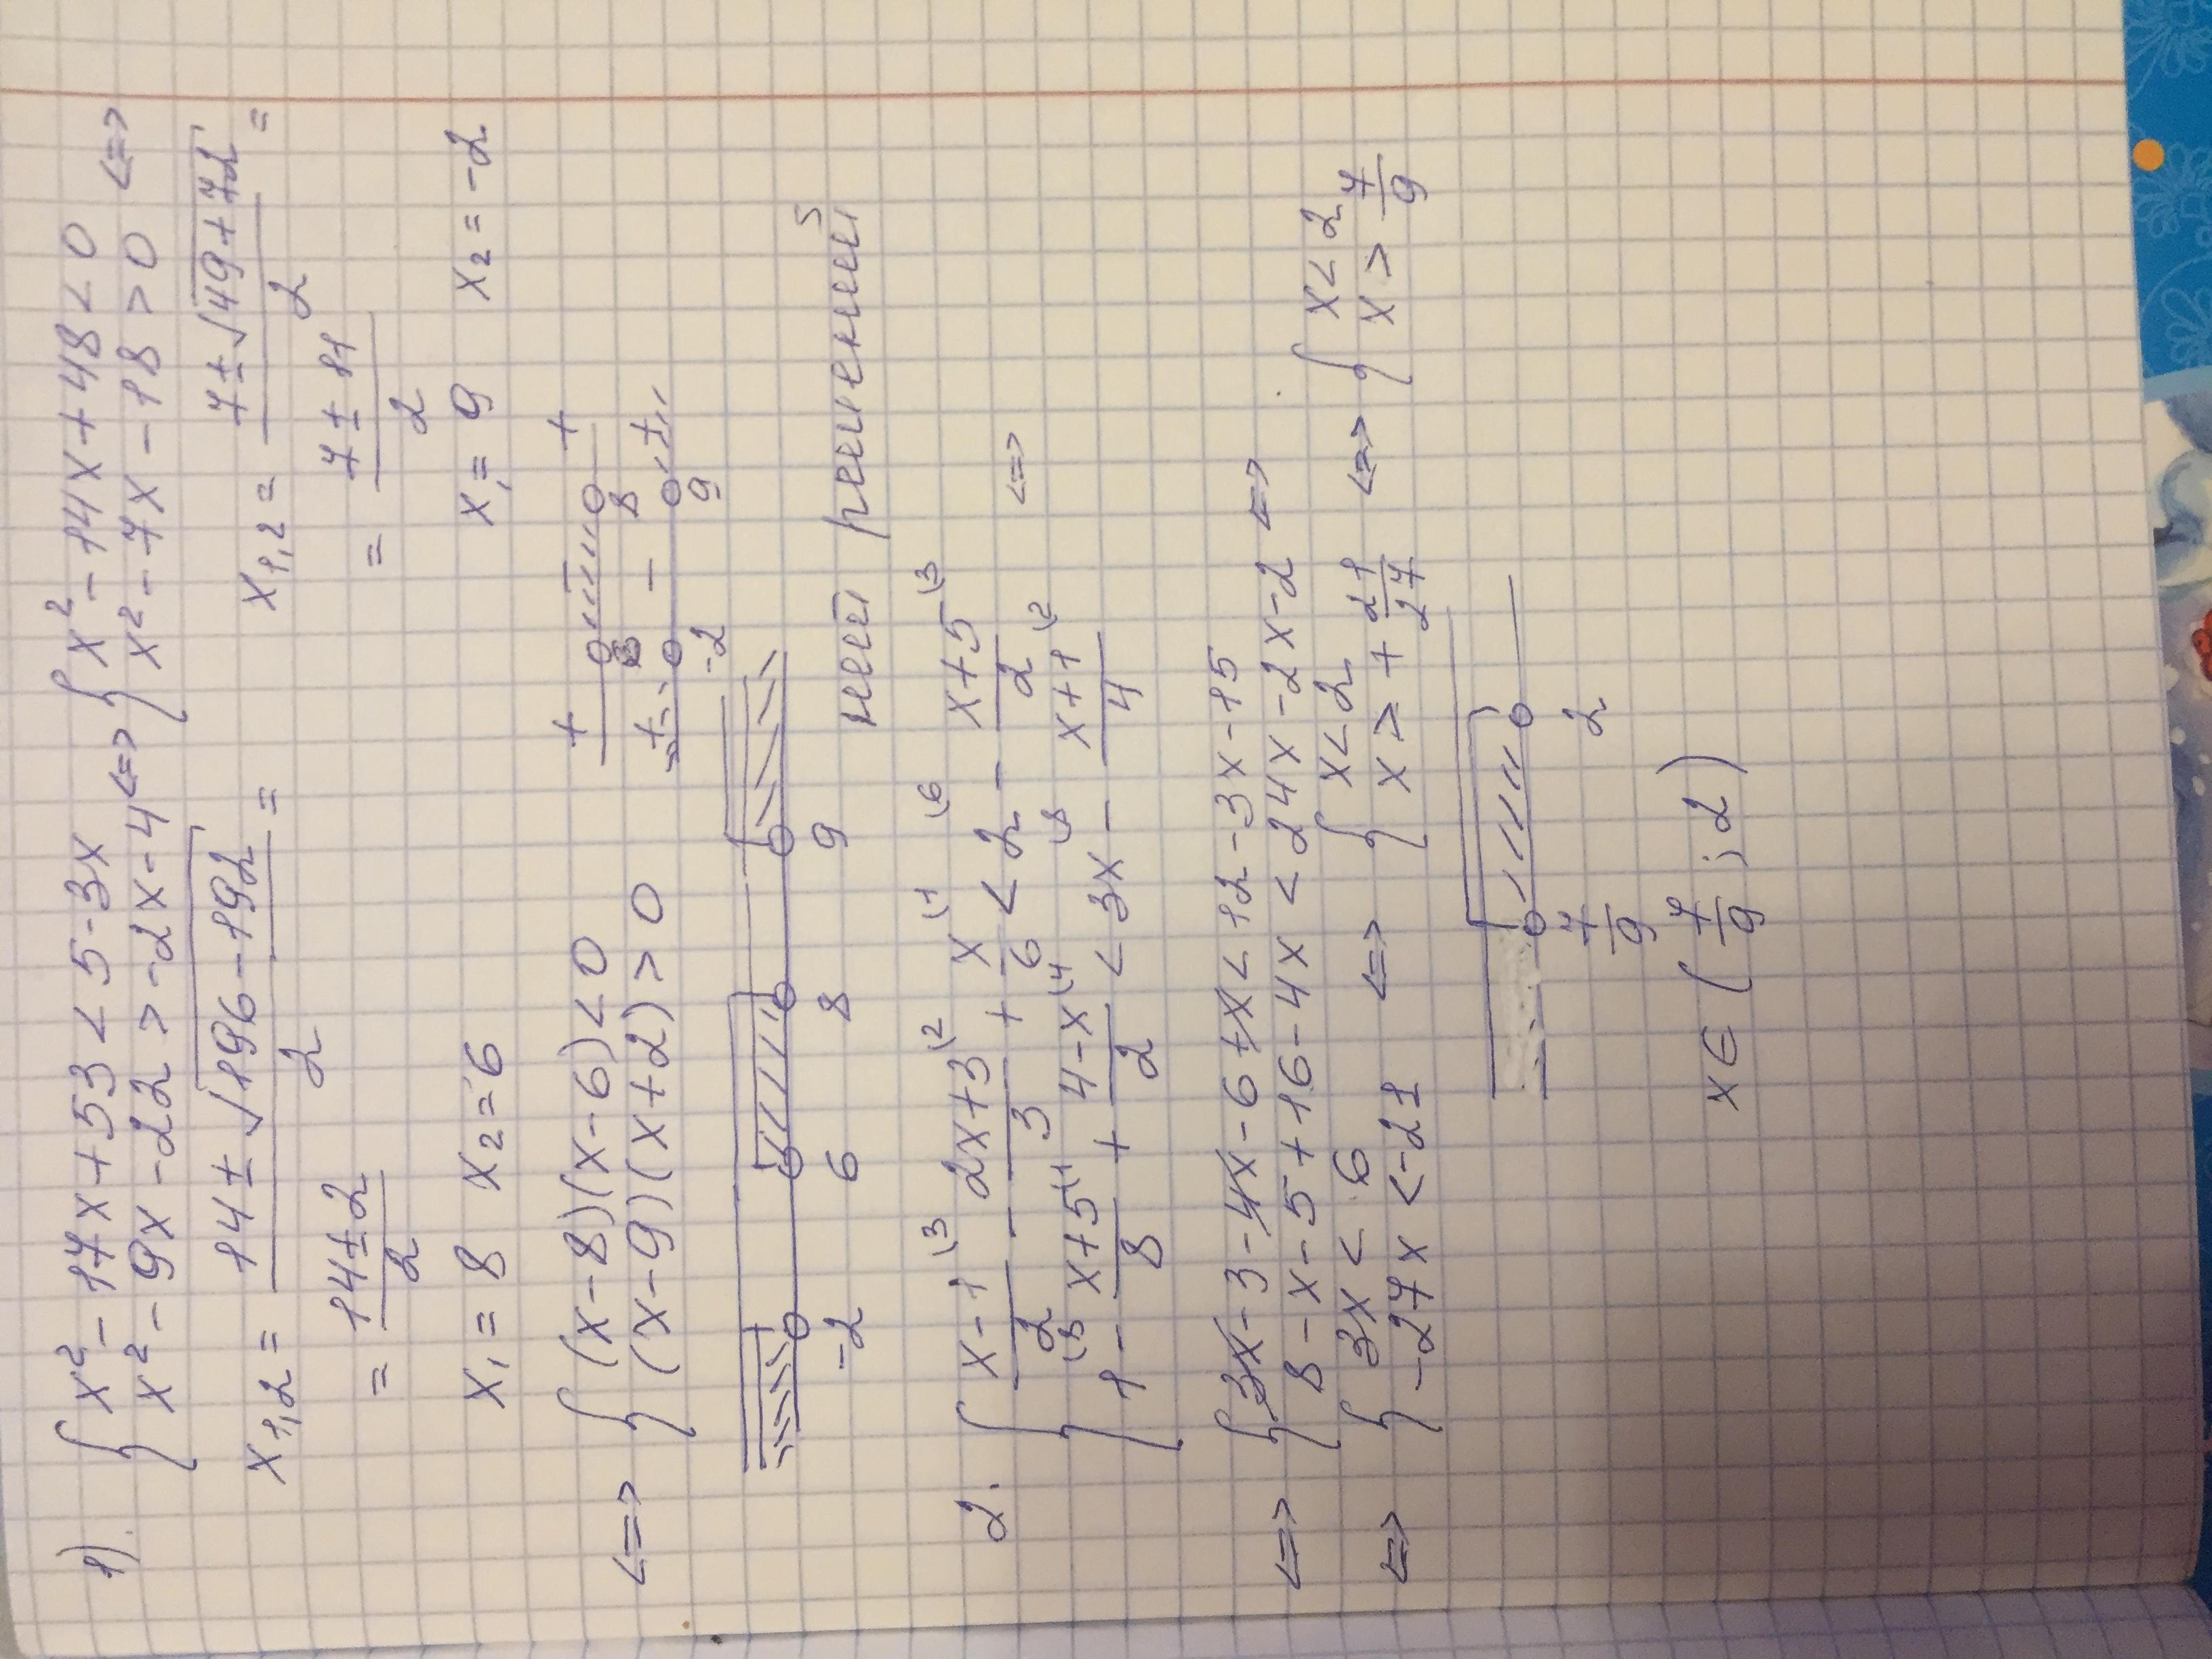 1). { x² - 17x + 53 < 5 - 3x <=> { x² - 14x + 48 < 0
x² - 9x - 22 > -2x - 4 x² - 7x - 18 > 0 <=>
x₁,₂ = (14 ± √(196 - 192))/2 = x₁,₂ = (7 ± √(49 + 72))/2 =
= (14 ± 2)/2 = (7 ± 11)/2
x₁ = 8 x₂ = 6 x₁ = 9 x₂ = -2
<=> { (x - 8)(x - 6) < 0 + 6 8 +
(x - 9)(x + 2) > 0 + -2 - 9 +
-2 6 8 9
нет решений
2. { (x - 1)/2 \3 - (2x + 3)/3 \2 + x/6 \1 < 2 \6 - (x + 5)/2 \3 <=>
1 \8 - (x + 5)/8 \1 + (4 - x)/2 \4 < 3x \8 - (x + 1)/4 \2
<=> { 3x - 3 - 4x - 6 + x < 12 - 3x - 15 <=>
8 - x - 5 + 16 - 4x < 24x - 2x - 2
<=> { 3x < 6 <=> { x < 2 <=> { x < 2
-27x < -21 x > + 21/27 x > 7/9
7/9 2
x ∈ (7/9 ; 2)